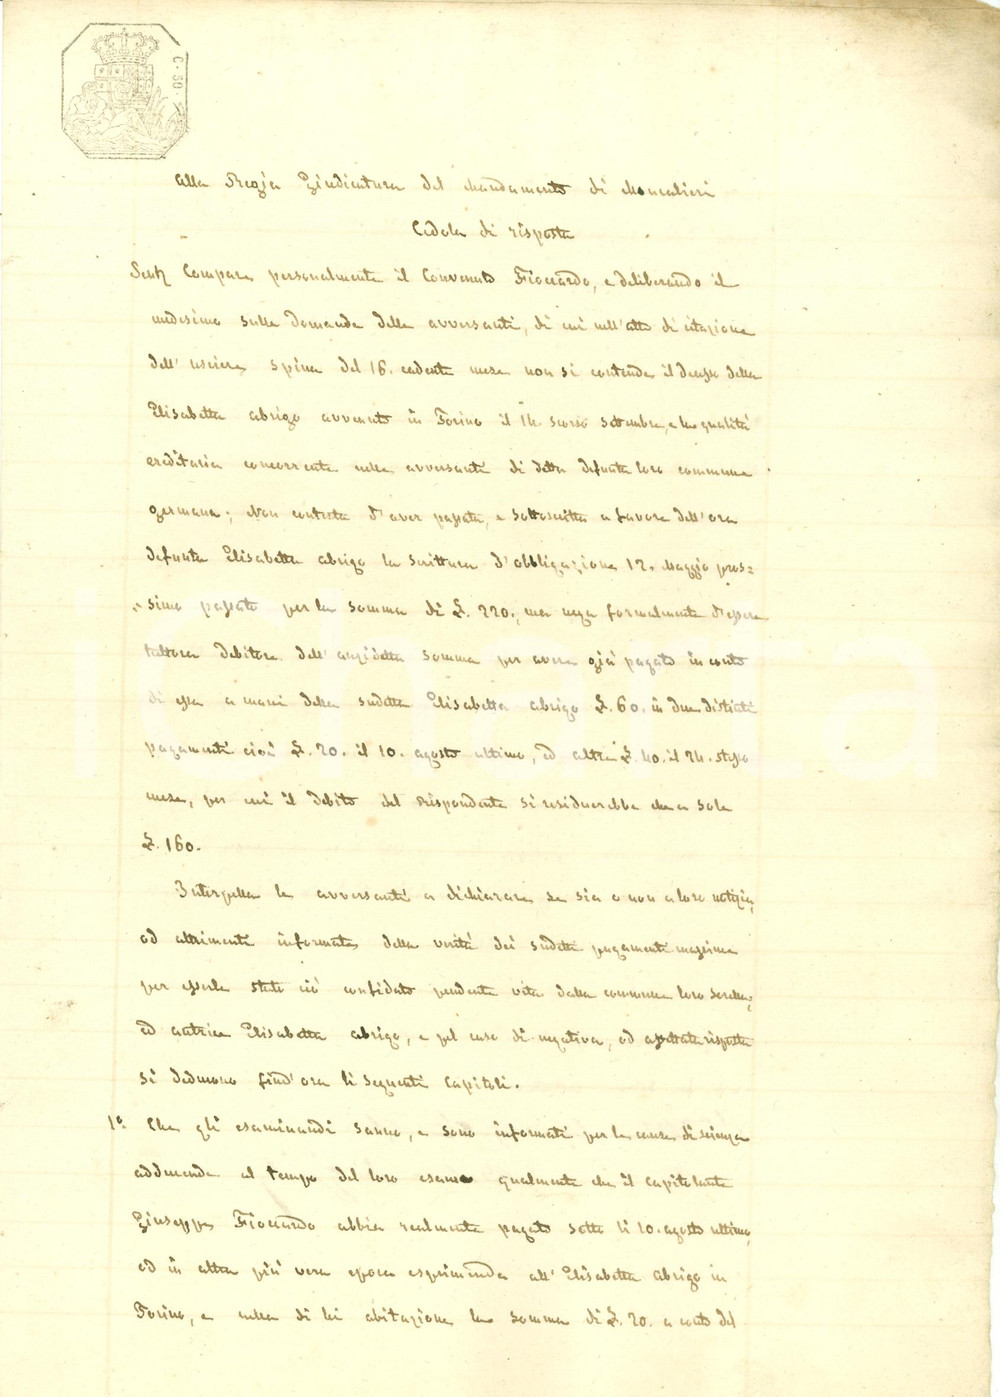 C. 50.
Alla Regia Giudicatura del Mandamento di Moncalieri
Cedola di risposta
Compare personalmente il Convenuto Fioccardo, e deliberando il
medesimo sulla domanda delle avversanti, di cui nell'atto di citazione
dell'usciere Spina del 16. cadente mese non si contende il decesso della
Elisabetta Abrigo avvenuto in Torino il 14. scorso settembre, e la qualità
ereditaria concorrente nelle avversanti di detta defunta loro commune
germana; Non contesta d'aver passata, e sottoscritta a favore dell'ora
defunta Elisabetta Abrigo la scrittura d'obbligazione 12. Maggio pros=
=simo passato per la somma di £. 220., ma nega formalmente d'essere
tuttora debitore dell'anzidetta somma per avere già pagato in conto
di essa a mani della sudetta Elisabetta Abrigo £. 60. in due distinti
pagamenti cioè £. 20. il 10. agosto ultimo, ed altre £. 40. il 24. stesso
mese, per cui il debito del Rispondente si residuerebbe che a sole
£. 160.
Interpella le avversanti a dichiarare se sia o non a loro notizia,
od altrimenti informate della verità dei sudetti pagamenti massime
per esserle stato ciò confidato pendente vita dalla commune loro sorella,
ed autrice Elisabetta Abrigo, e pel caso di negativa, od aspettata risposta
si deducono find'ora li seguenti capitoli.
1º. Che gli esaminandi sanno, e sono informati per la causa di scienza
adducenda al tempo del loro esame qualmente che il capitolante
Giuseppe Fioccardo abbia realmente pagato sotto li 10. agosto ultimo,
od in altra più vera epoca esprimenda all'Elisabetta Abrigo in
Torino, e nella di lei abitazione la somma di £. 20. a conto del